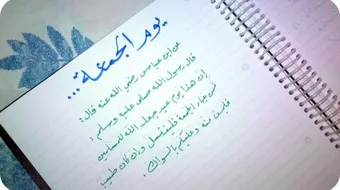 يوم الجمعة ...
عن ابن عباس رضي الله عنه قال:
قال رسول الله صلى الله عليه وسلم:
إن هذا يوم عيد جعله الله للمسلمين
فمن جاء الجمعة فليغتسل وإن كان طيب
فليمس منه وعليكم بالسواك.